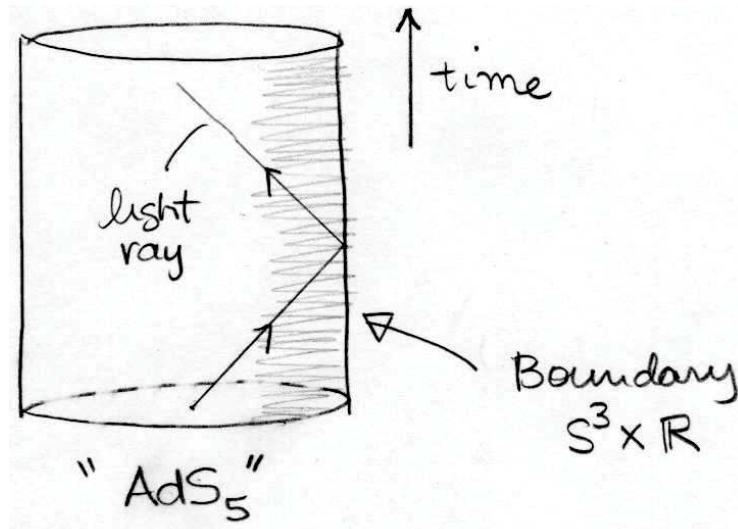 time
light
ray
Boundary
S³ × ℝ
"AdS₅"